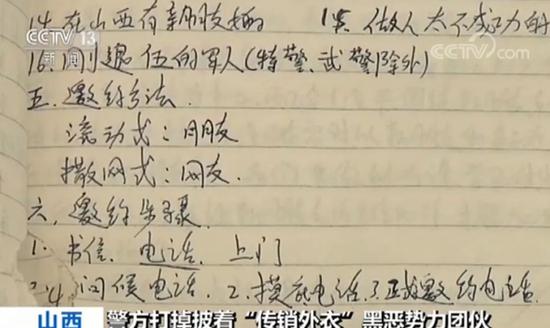 CCTV 13
新闻
CCTV.com
14.在山西有亲朋 15.做人太不成功的
16.刚退伍的军人(特警、武警除外)
五.邀约方法.
流动式:朋友
撒网式:网友.
六.邀约步骤.
1.书信.电话.上门
问候电话.2.摸底电话.3.正式邀约电话.
山西 警方打掉披着“传销外衣”黑恶势力团伙